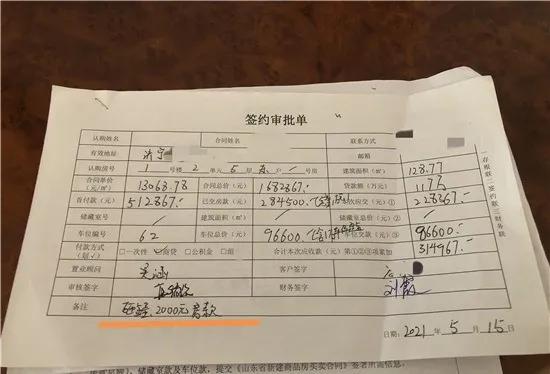 签约审批单
认购姓名 合同姓名 联系方式
有效地址 济宁 邮箱
认购房号 1 号楼 2 单元 5 层 东 户 / 号房 建筑面积(㎡) 128.77
合同单价(元/㎡) 13068.78 合同总价(元) 1682867.- 贷款额(万元) 117万
首付款(元) 512867.- 已交房款(元) 284500.- 228367.-
储藏室号 / 建筑面积(㎡) / 储藏室总价(元)② /
车位编号 62 车位总价(元) 96600. 车位交款(元)③ 96600.-
付款方式(划√) □一次性 商贷 □公积金 □组 合计本次应收款(元)第①②③项累加 314967.-
置业顾问 吴涵 客户签字
审核签字 财务签字
备注 2000元
日期:2021年5月15日
一存根联二签约联三财务联
储藏室款及车位款,提交《山东省新建商品房买卖合同》签署所需信息。